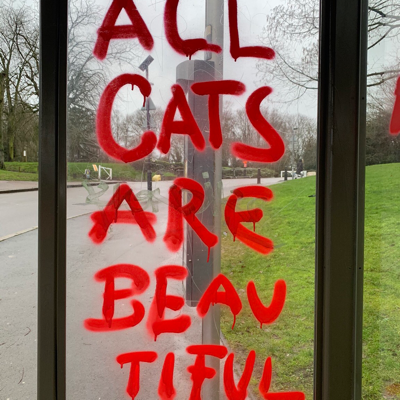 ALL
CATS
ARE
BEAU
TIFUL